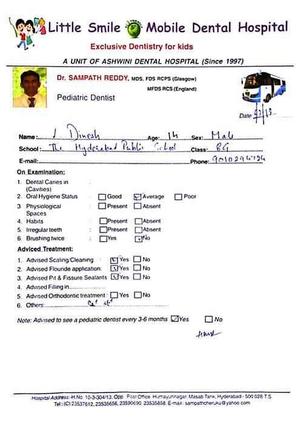 Little Smile Mobile Dental Hospital
Exclusive Dentistry for kids
A UNIT OF ASHWINI DENTAL HOSPITAL (Since 1997)
Dr. SAMPATH REDDY, MDS, FDS RCPS (Glasgow)
MFDS RCS (England)
Pediatric Dentist
Date
Name: Dinesh Age: 14 Sex: Male
School: The Hyderabad Public School Class: 8G
E-mail: Phone:
On Examination:
1 Dental Caries in (Cavities)
2 Oral Hygiene Status Good Average Poor
3 Physiological Spaces Present Absent
4 Habits Present Absent
5 Irregular teeth Present Absent
6 Brushing twice Yes No
Adviced Treatment:
1 Advised Scaling/Cleaning Yes No
2 Advised Flouride application: Yes No
3 Advised Pit & Fissure Sealants Yes No
4 Advised Filling in
5 Advised Orthodontic treatment: Yes No
6 Others:
Note: Advised to see a pediatric dentist every 3-6 months Yes No
Hospital Address: H.No. 10-3-304/13, Opp. Post Office Humayunnagar, Masab Tank, Hyderabad - 500 028 T.S.